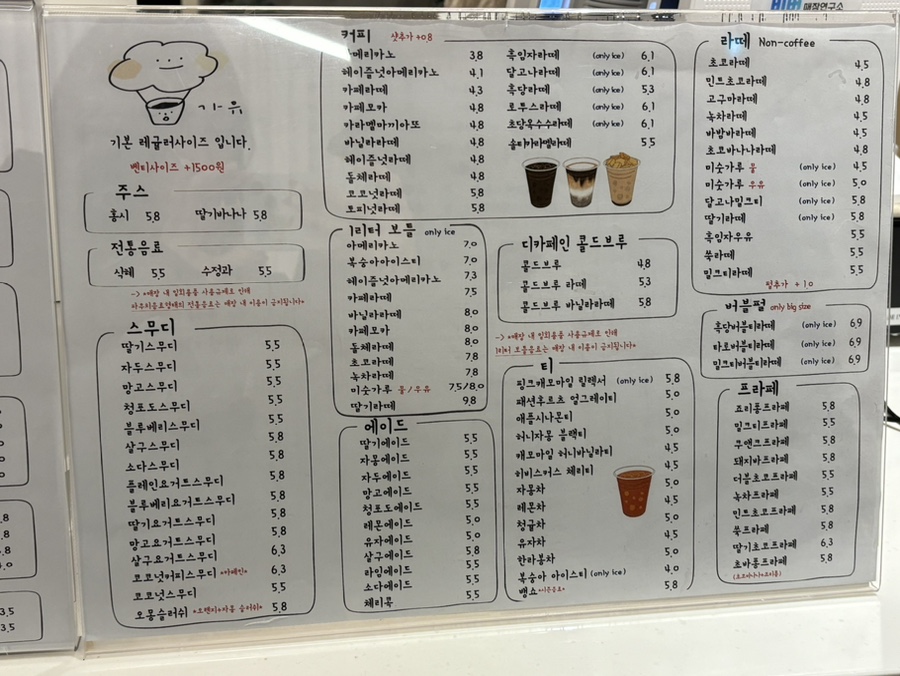 비버 매장연구소
기본 레귤러사이즈 입니다.
벤티사이즈 +1500원
주스
홍시 5.8 딸기바나나 5.8
전통음료
식혜 5.5 수정과 5.5
스무디
딸기스무디 5.5
자두스무디 5.5
망고스무디 5.5
청포도스무디 5.5
블루베리스무디 5.5
살구스무디 5.8
소다스무디 5.8
플레인요거트스무디 5.8
블루베리요거트스무디 5.8
딸기요거트스무디 5.8
망고요거트스무디 5.8
살구요거트스무디 6.3
코코넛커피스무디 *카페인* 6.3
코코넛스무디 5.5
오몽슬러쉬 *오렌지+자몽 슬러쉬* 5.8
커피 샷추가 +0.8
아메리카노 3.8
헤이즐넛아메리카노 4.1
카페라떼 4.3
카페모카 4.8
카라멜마끼아또 4.8
바닐라라떼 4.8
헤이즐넛라떼 4.8
돌체라떼 4.8
코코넛라떼 5.8
토피넛라떼 5.8
흑임자라떼 (only ice) 6.1
달고나라떼 (only ice) 6.1
흑당라떼 (only ice) 5.3
로투스라떼 (only ice) 6.1
초당옥수수라떼 (only ice) 6.1
솔티카라멜라떼 5.5
1리터 보틀 only ice
아메리카노 7.0
복숭아아이스티 7.0
헤이즐넛아메리카노 7.3
카페라떼 7.5
바닐라라떼 8.0
카페모카 8.0
돌체라떼 8.0
초코라떼 7.8
녹차라떼 7.8
미숫가루 물/우유 7.5/8.0
딸기라떼 9.8
에이드
딸기에이드 5.5
자몽에이드 5.5
자두에이드 5.5
망고에이드 5.5
청포도에이드 5.5
레몬에이드 5.0
유자에이드 5.0
살구에이드 5.8
라임에이드 5.5
소다에이드 5.5
체리콕 5.5
디카페인 콜드브루
콜드브루 4.8
콜드브루 라떼 5.3
콜드브루 바닐라라떼 5.8
-> *매장 내 일회용품 사용규제로 인해
1리터 보틀음료는 매장 내 이용이 금지됩니다*
티
핑크캐모마일 릴렉서 (only ice) 5.8
패션후르츠 얼그레이티 5.0
애플시나몬티 5.0
허니자몽 블랙티 5.0
캐모마일 허니바닐라티 4.5
히비스커스 체리티 4.5
자몽차 5.0
레몬차 4.5
청귤차 5.0
유자차 4.5
한라봉차 5.0
복숭아 아이스티 (only ice) 4.0
뱅쇼 5.8
라떼 Non-coffee
초코라떼 4.5
민트초코라떼 4.8
고구마라떼 4.8
녹차라떼 4.5
바밤바라떼 4.5
초코바나나라떼 4.8
미숫가루 물 (only ice) 4.5
미숫가루 우유 (only ice) 5.0
달고나밀크티 (only ice) 5.8
딸기라떼 (only ice) 5.8
흑임자우유 5.5
쑥라떼 5.5
밀크티라떼 5.5
펄추가 +1.0
버블펄 only big size
흑당버블티라떼 (only ice) 6.9
타로버블티라떼 (only ice) 6.9
밀크티버블티라떼 (only ice) 6.9
프라페
죠리퐁프라페 5.8
밀크티프라페 5.8
쿠앤크프라페 5.8
돼지바프라페 5.8
더블초코프라페 5.5
녹차프라페 5.5
민트초코프라페 5.8
쑥프라페 5.8
딸기초코프라페 6.3
초바퐁프라페 5.8